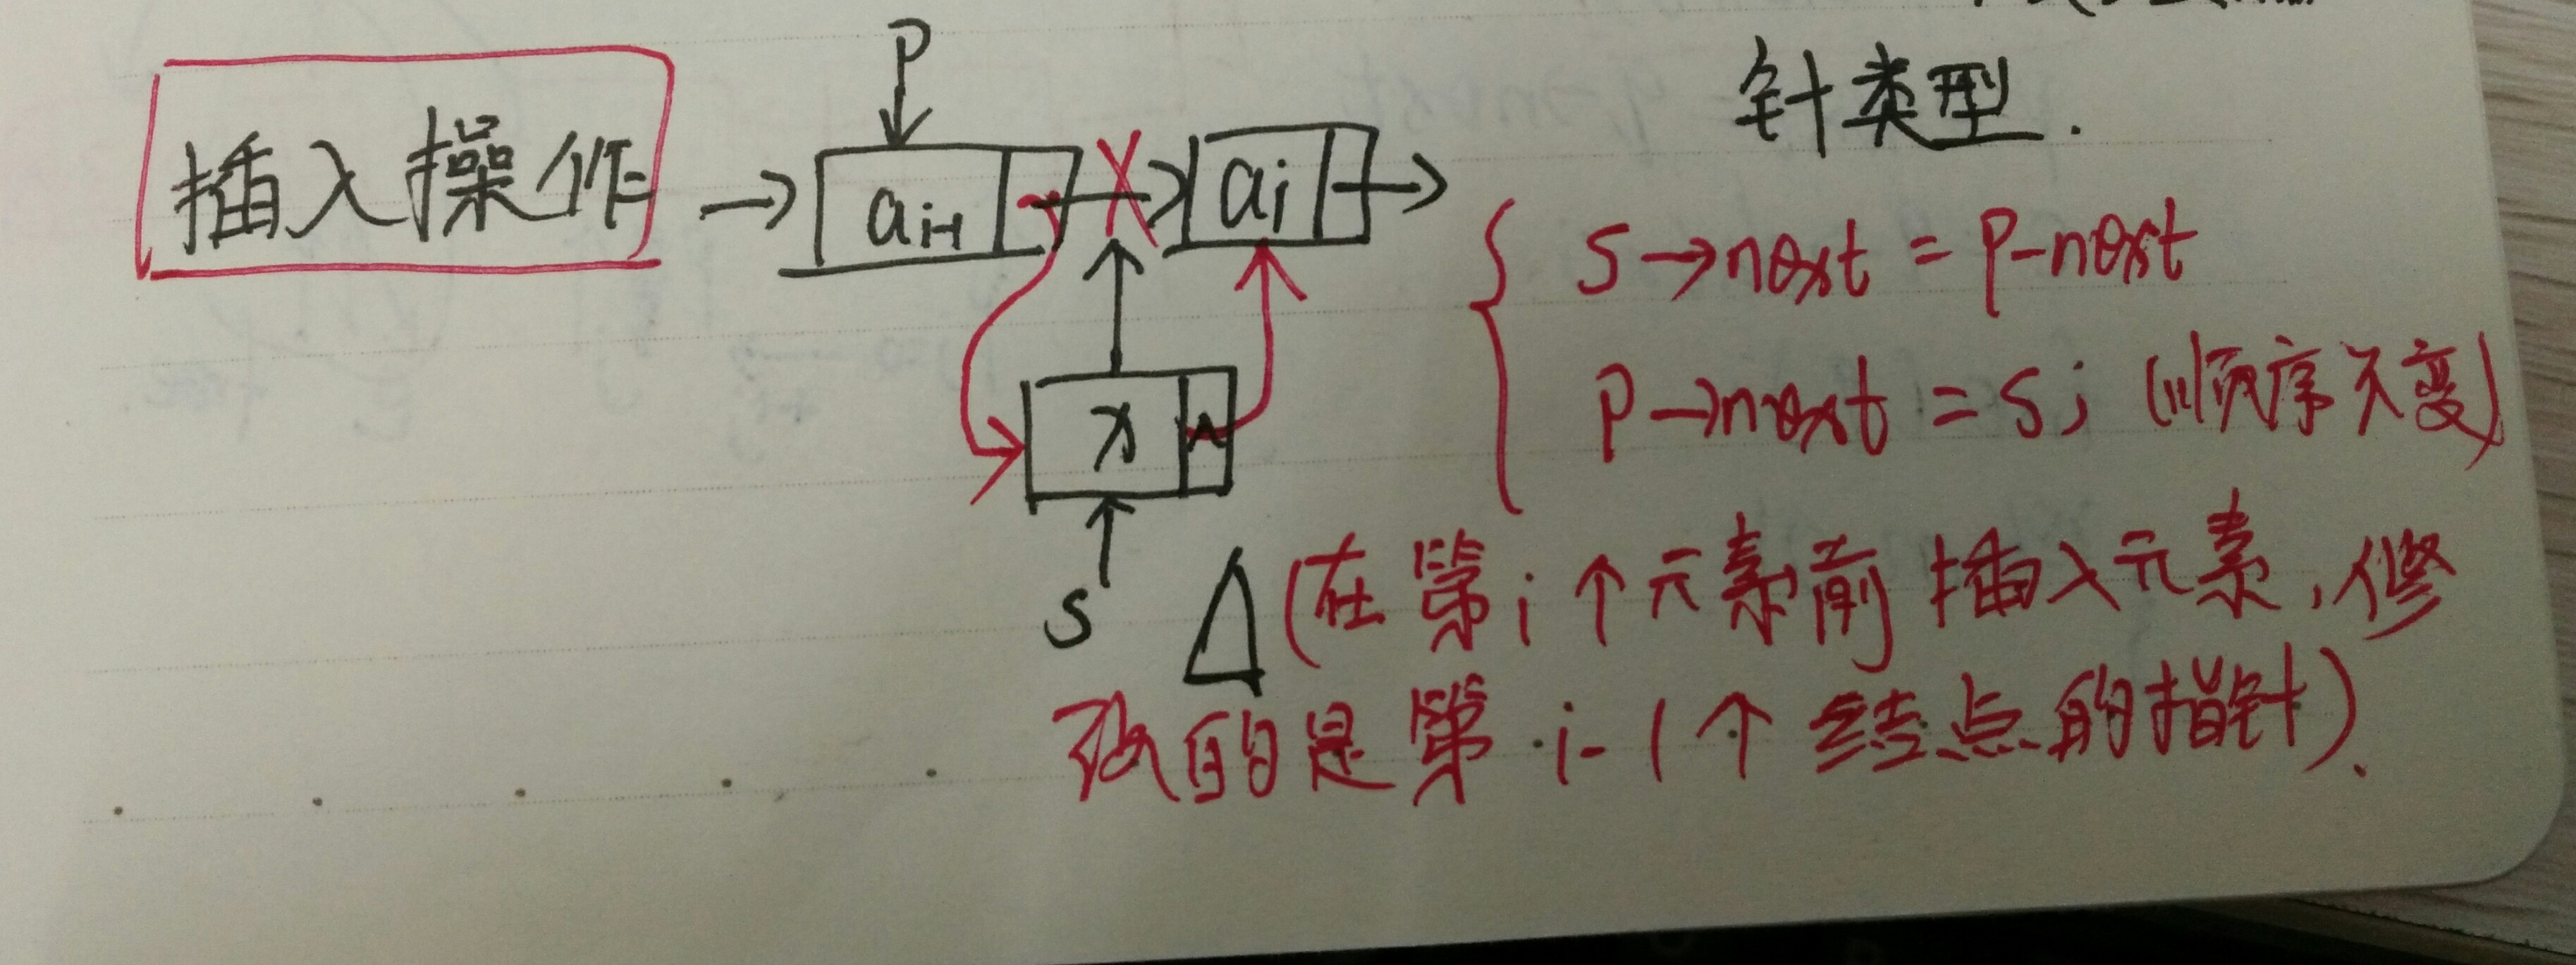 针类型.
插入操作
P
→ aᵢ₋₁ → aᵢ →
x ∧
S
S→next = P-next
P→next = S; (顺序不变)
△ (在第i个元素前插入元素,修
改的是第i-1个结点的指针).